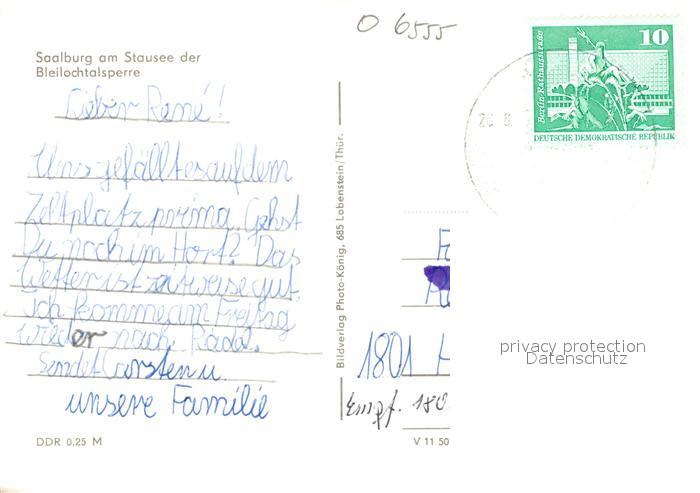 O 6555
10
Berlin-Rathausstraße
DEUTSCHE DEMOKRATISCHE REPUBLIK
Saalburg am Stausee der
Bleilochtalsperre
Lieber René!
Uns gefällt es auf dem
Zeltplatz prima. Gehst
Du noch im Hort? Das
Wetter ist zeitweise gut.
Ich komme am Freitag
wieder nach Radel.
Sendet Carsten u
unsere Familie
DDR 0,25 M
Bildverlag Photo-König, 685 Lobenstein/Thür.
1801 H
Empf. 180
V 11 50
privacy protection
Datenschutz